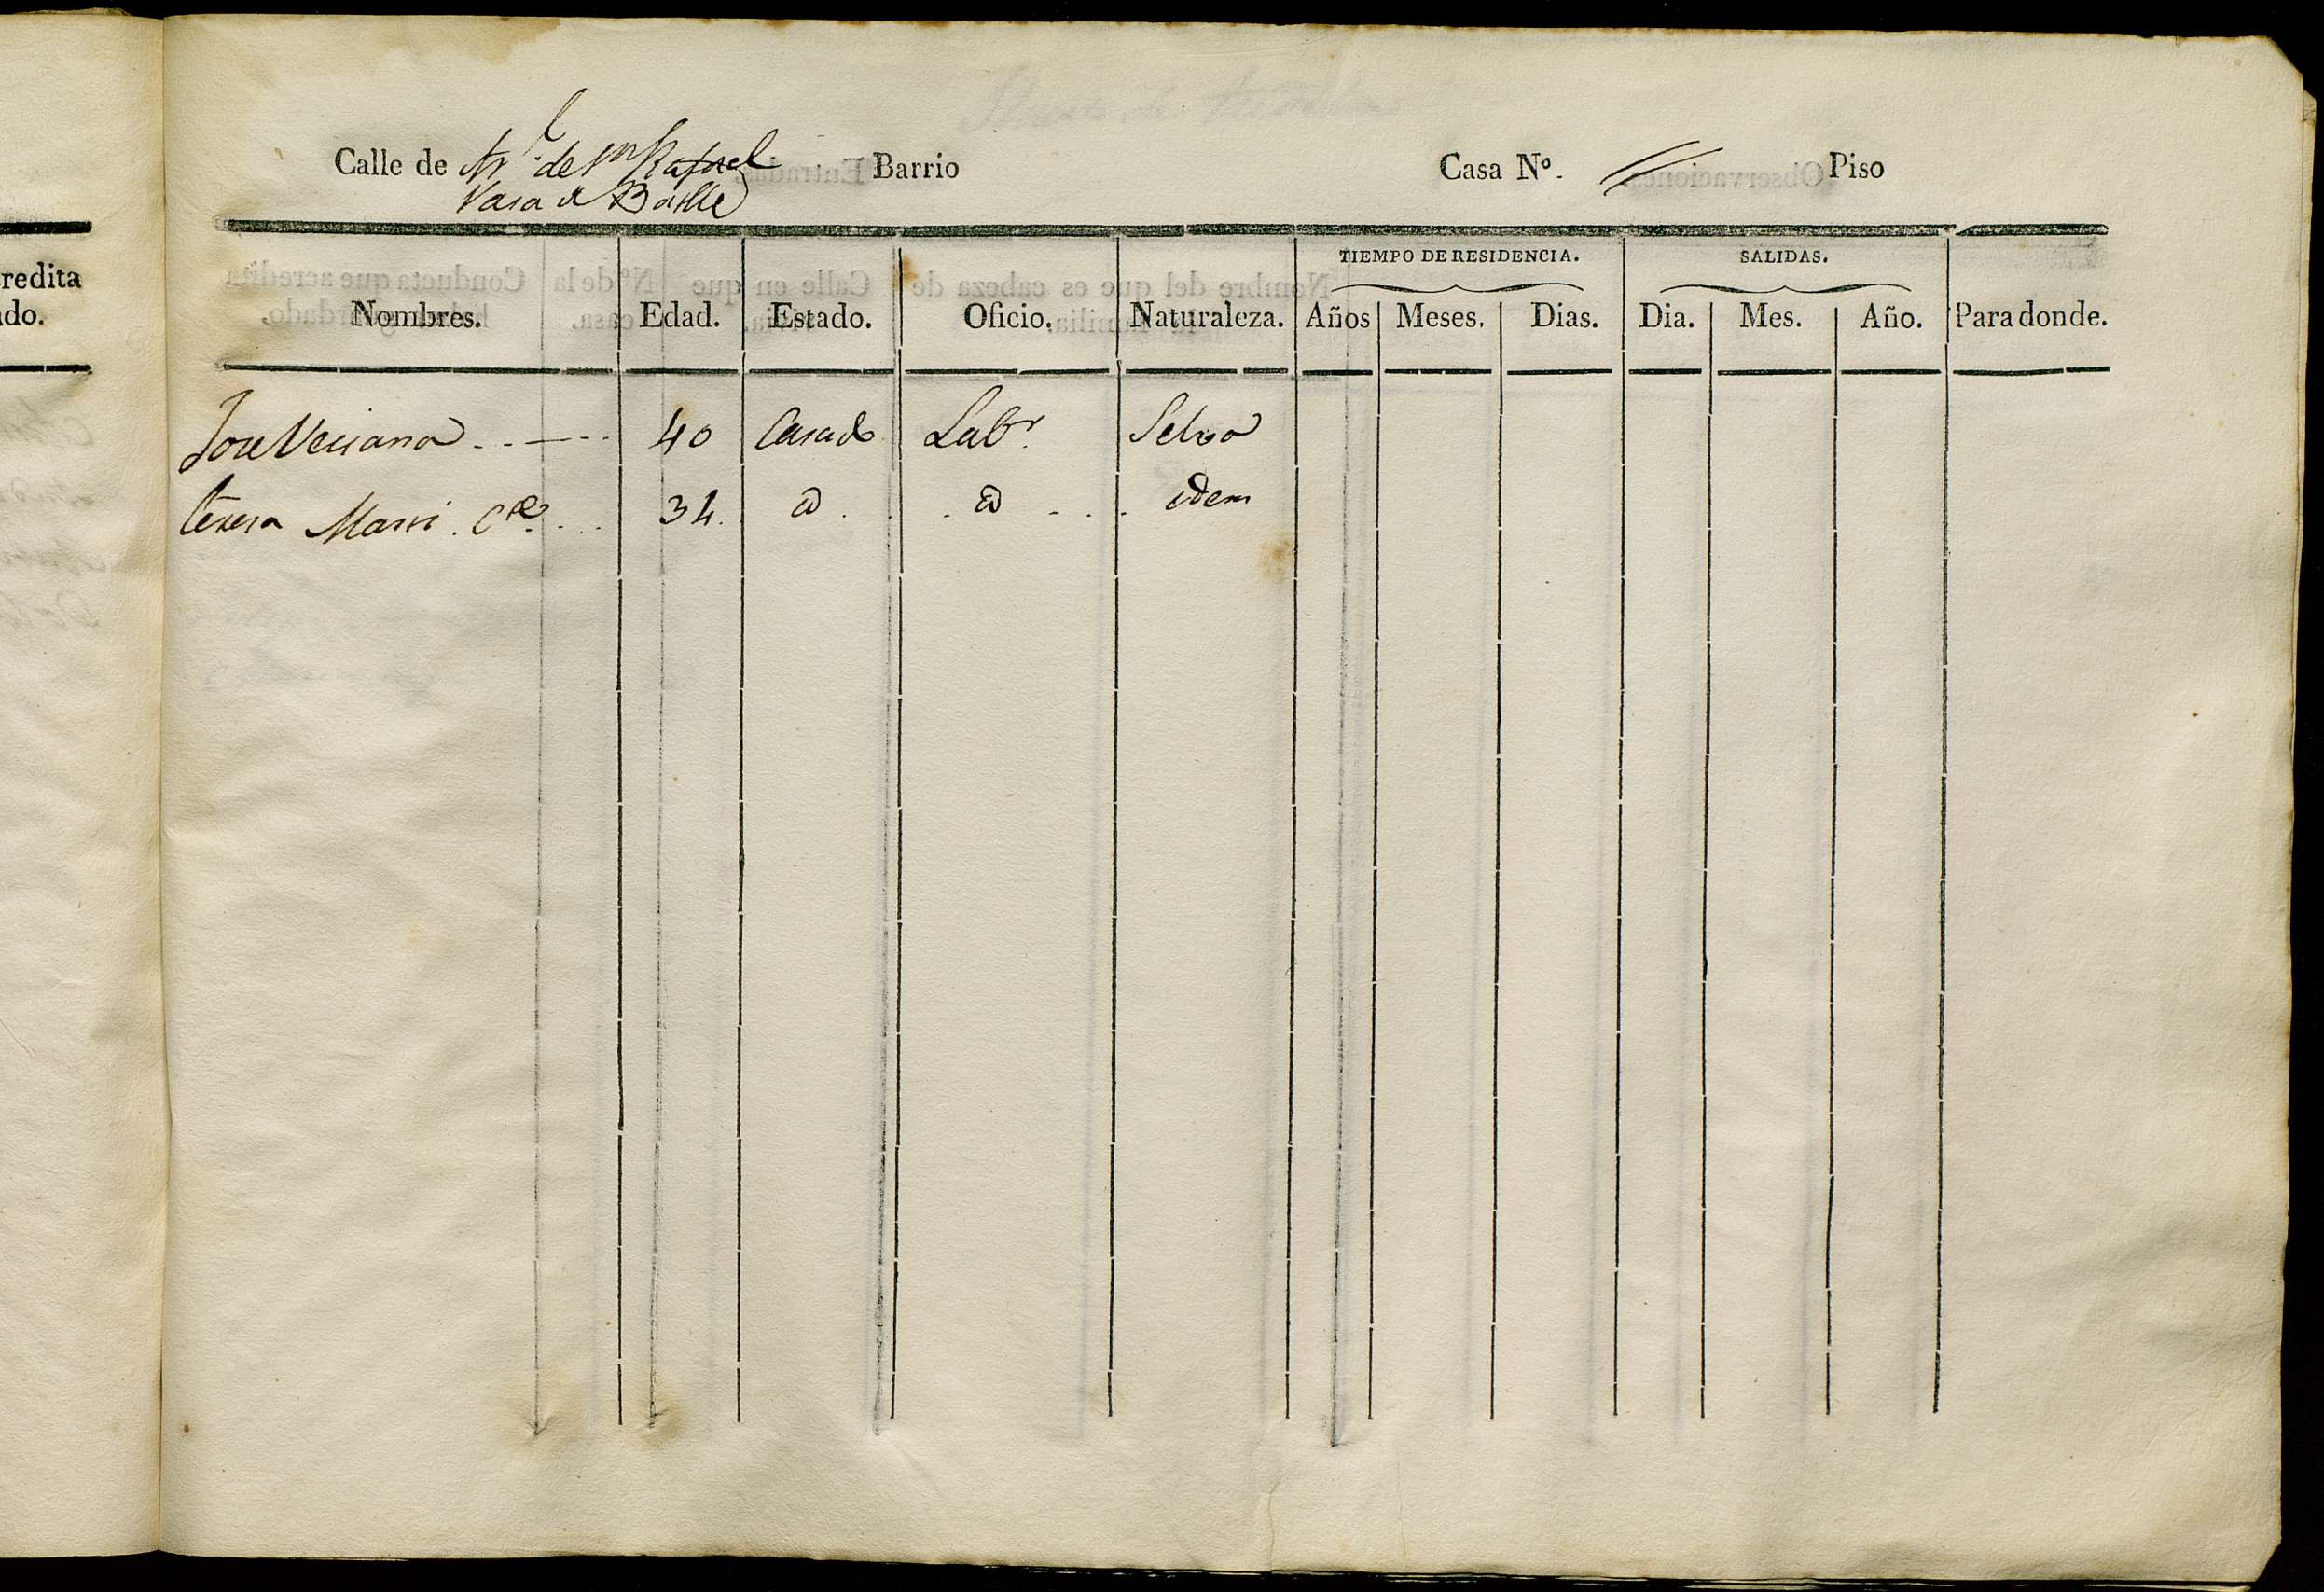 redita
do.
Calle de Arl. de Sn Rafael Barrio Casa Nº. Piso
Casa de Batlle
TIEMPO DE RESIDENCIA. SALIDAS.
Nombres. Edad. Estado. Oficio. Naturaleza. Años Meses. Dias. Dia. Mes. Año. Para donde.
Jose Veciana 40 Casado Labr. Selva
teresa Marri 34. idem